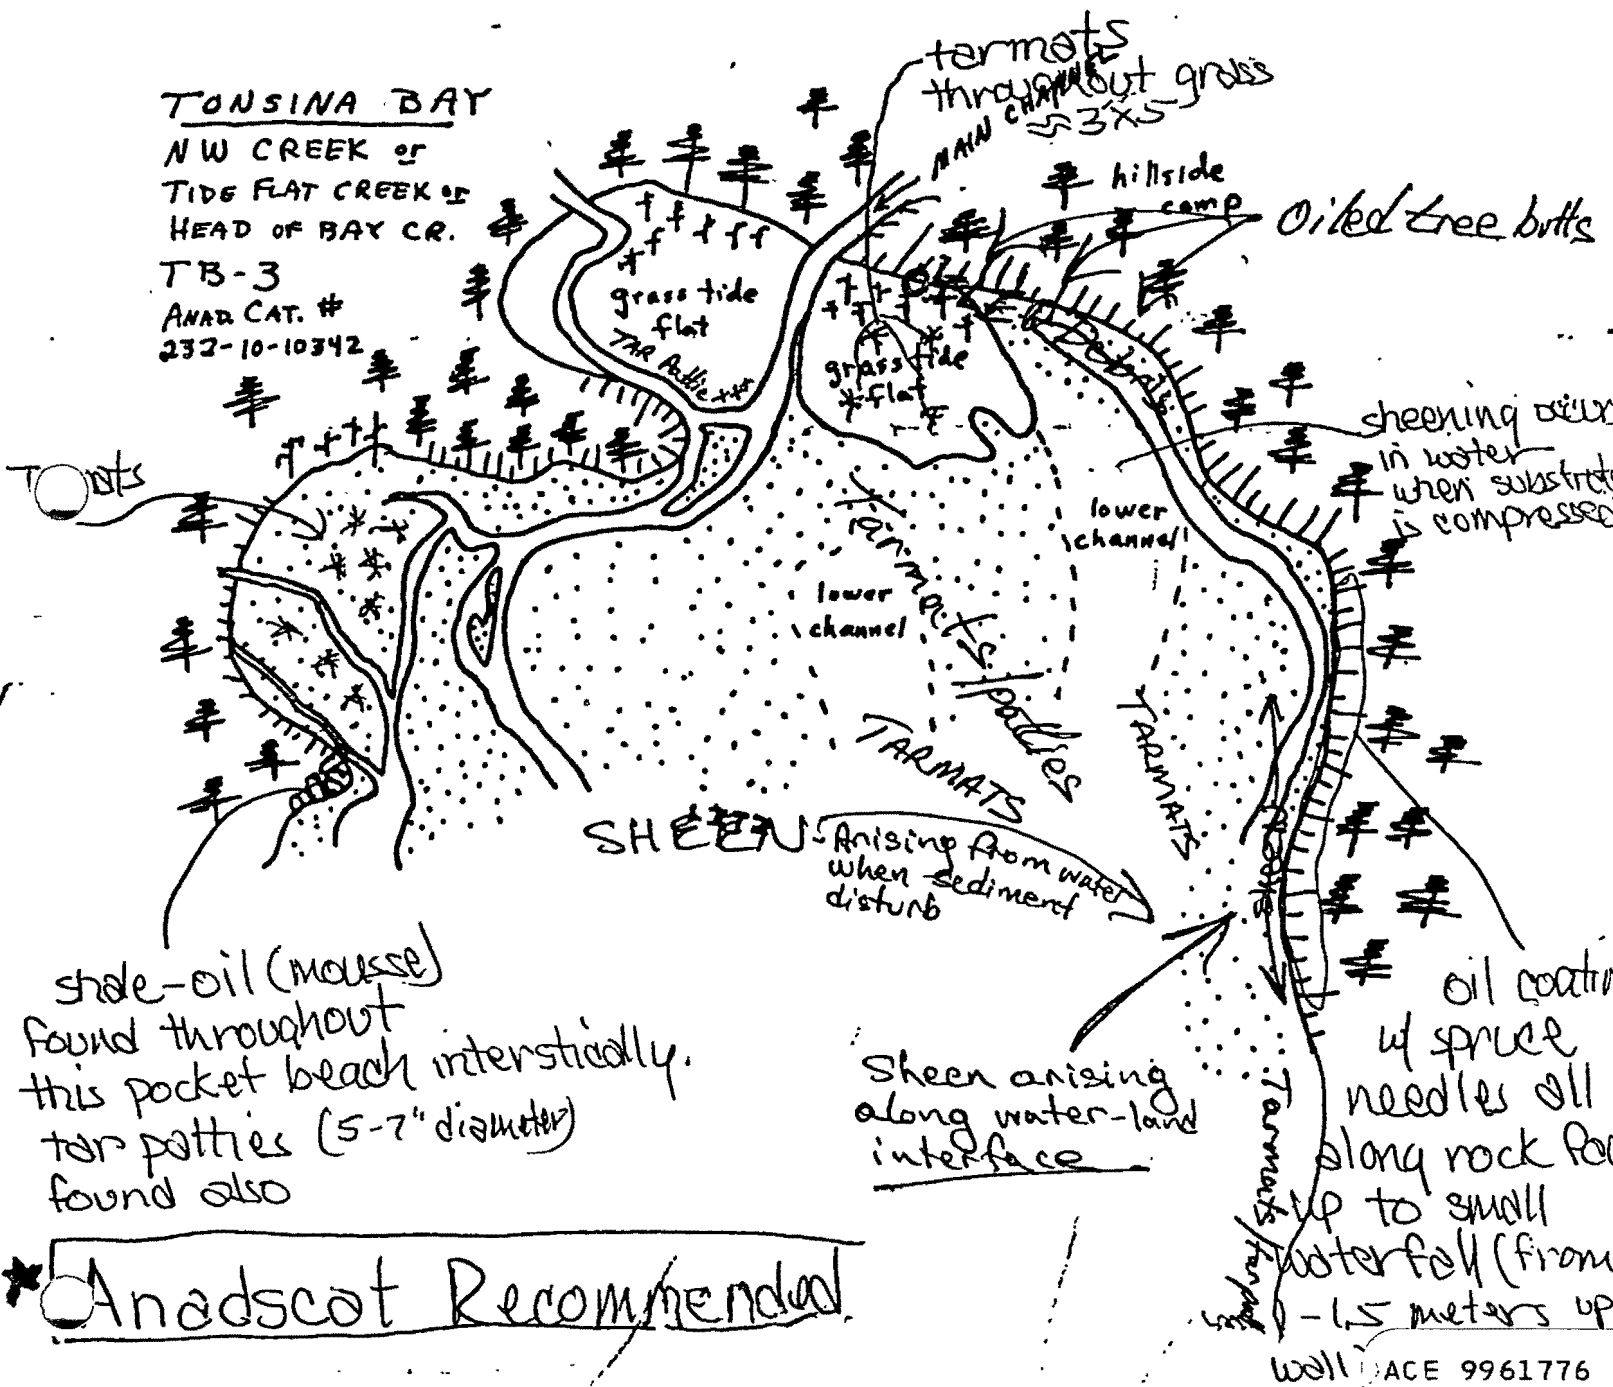 TONSINA BAY
NW CREEK or
TIDE FLAT CREEK or
HEAD OF BAY CR.
TB-3
ANAD. CAT. #
232-10-10342
tarmats
throughout grass
≈ 3x5
MAIN CHANNEL
hillside
camp
Oiled tree butts
grass tide
flat
TAR Pattie
grass tide
flat
Debris
sheening occurs
in water
when substrate
is compressed
lower
channel
Tarmats/patties
lower
channel
TARMATS
TARMATS
SHEEN - Arising from water
when sediment
disturb
shale-oil (mousse)
found throughout
this pocket beach interstically.
tar patties (5-7" diameter)
found also
Sheen arising
along water-land
interface
oil coatin
w/ spruce
needles all
along rock fac
up to small
waterfall (from
-1.5 meters up
wall
Tarmats/
Anadscat Recommended
ACE 9961776